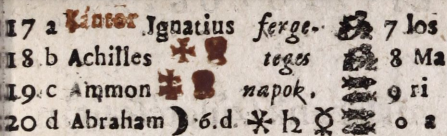 17 a Kántor Ignatius ferge- 7 los
18 b Achilles teges 8 Ma
19 c Ammon napok. 9 ri
20 d Abraham ☽ 6.d ✶ ♄ ☿ 0 a